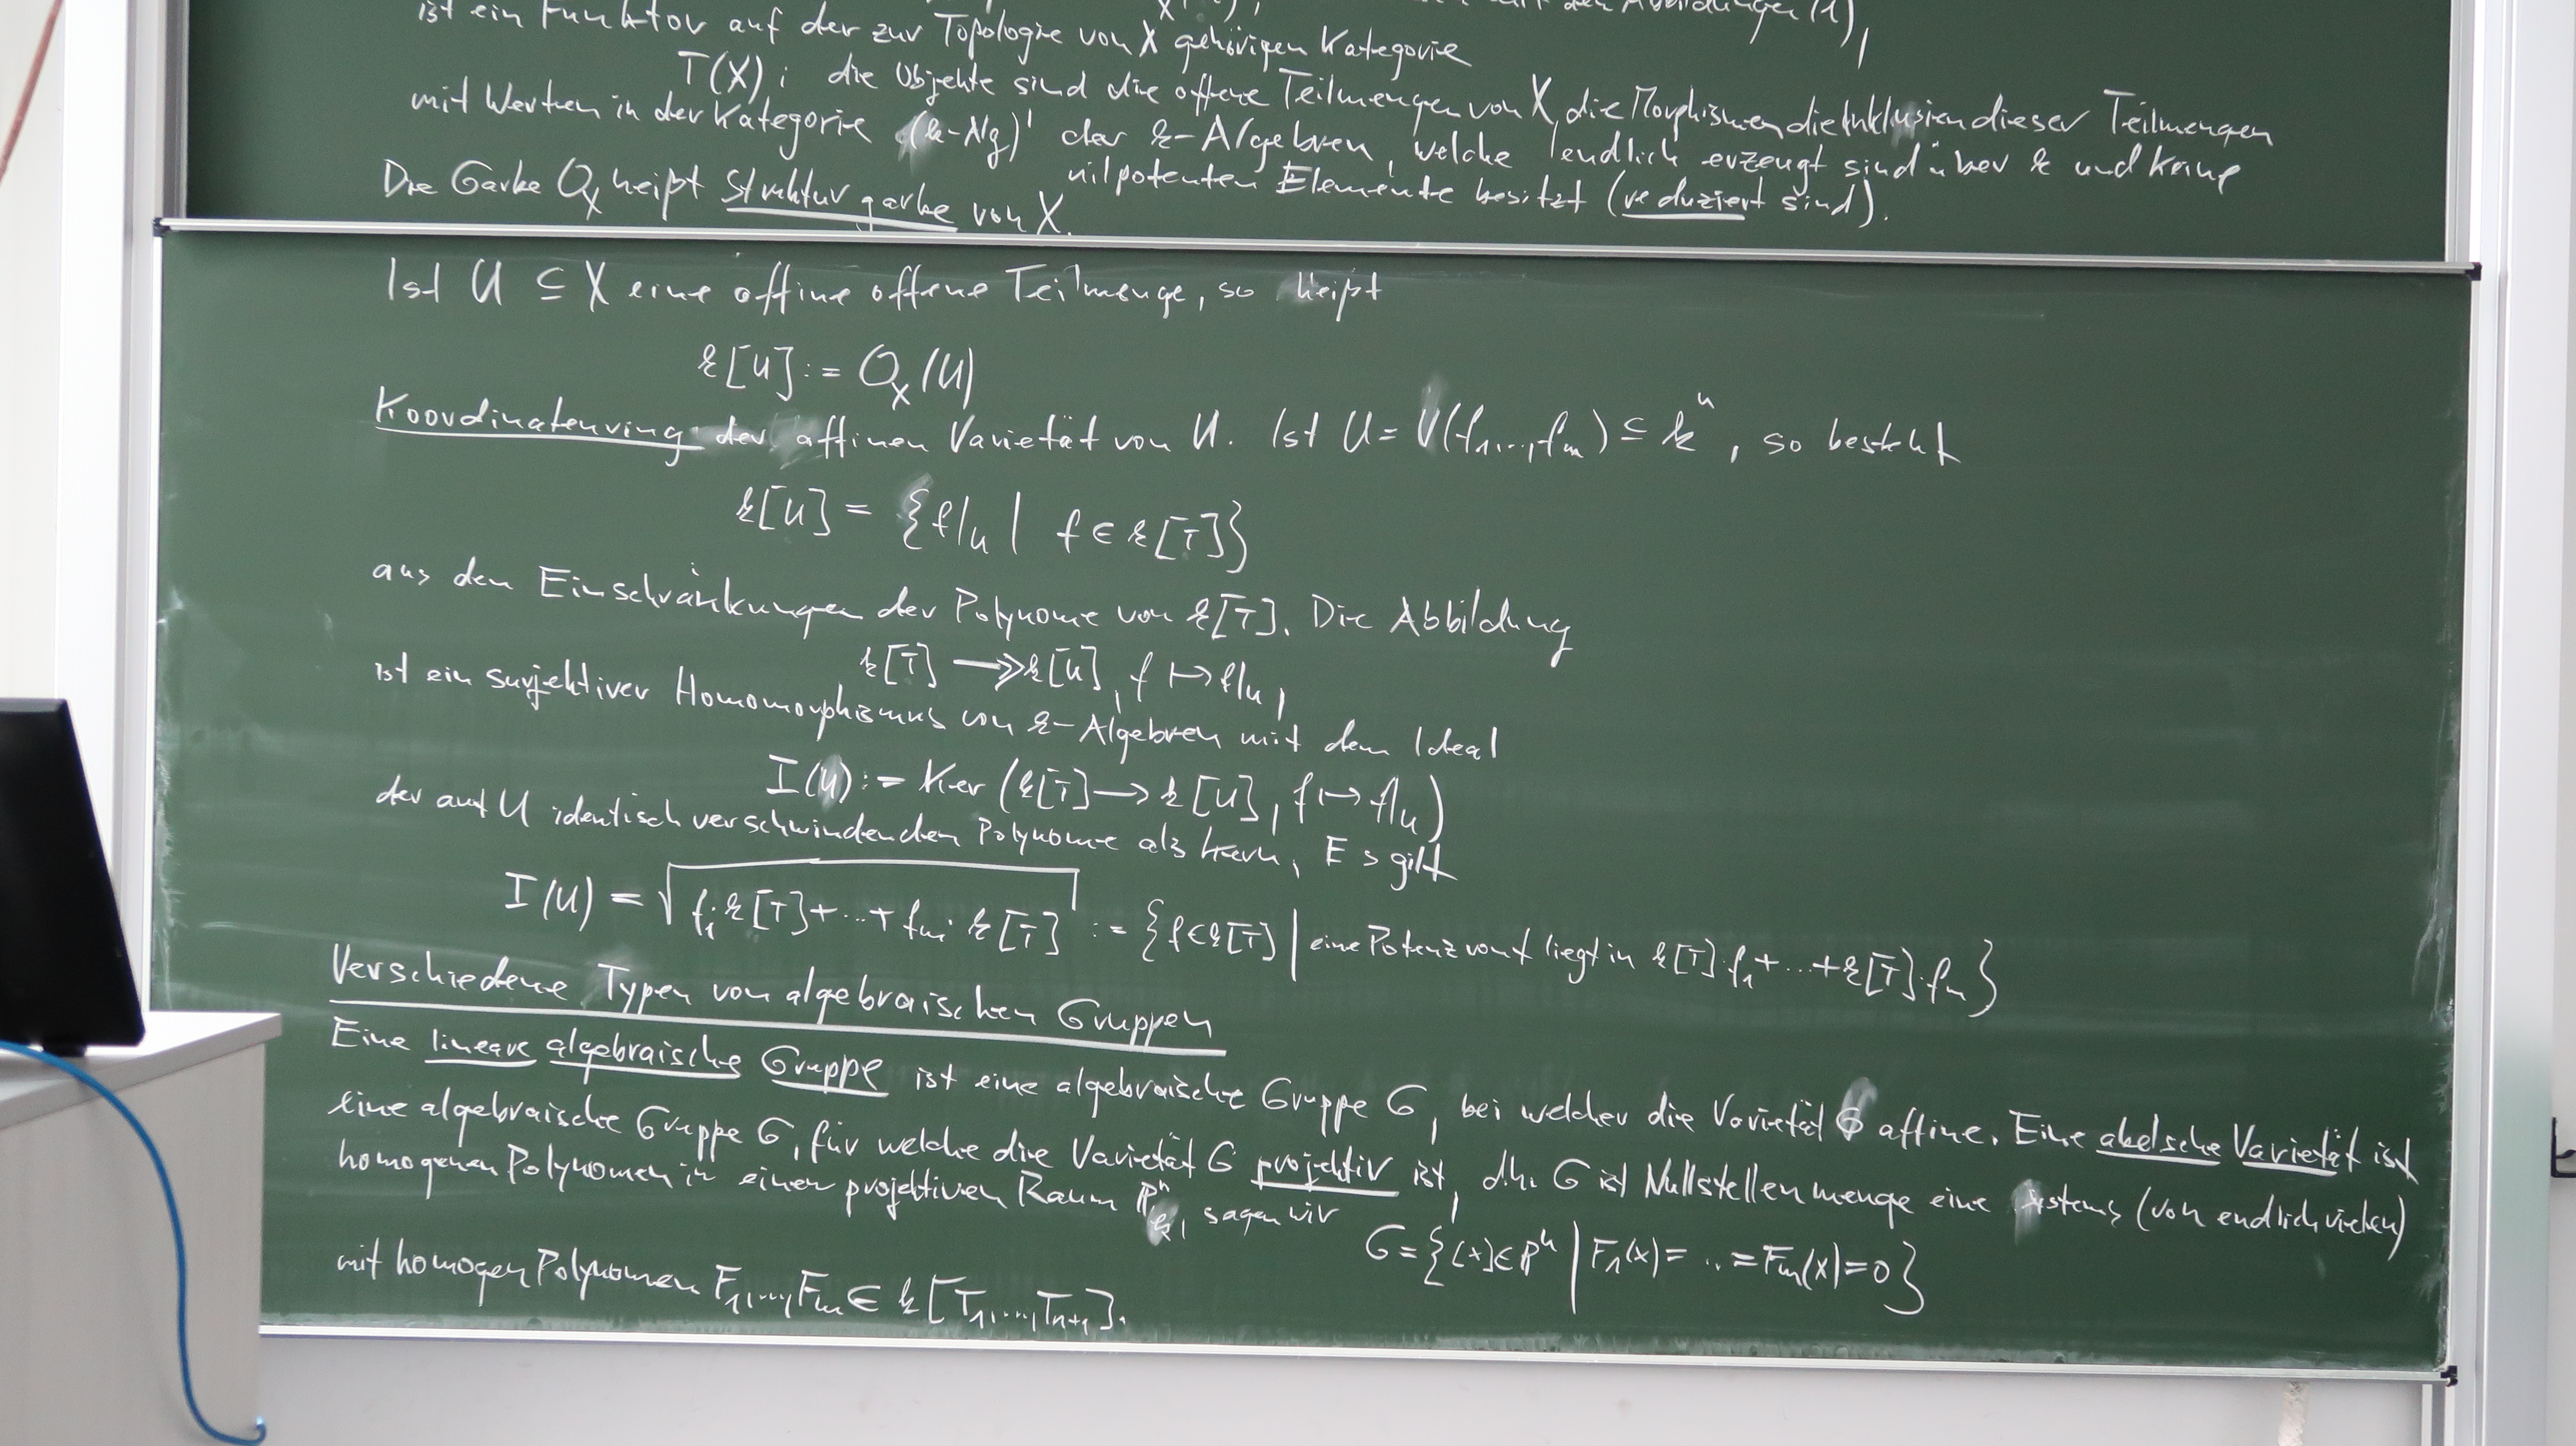 ist ein Funktor auf der zur Topologie von X gehörigen Kategorie
T(X); die Objekte sind die offene Teilmengen von X, die Morphismen die Inklusien dieser Teilmengen
mit Werten in der Kategorie (k-Alg)' der k-Algebren, welche endlich erzeugt sind über k und keine
nilpotenten Elemente besitzt (reduziert sind).
Die Garbe O_X heißt Strukturgarbe von X.
Ist U ⊆ X eine affine offene Teilmenge, so heißt
k[U] := O_X(U)
Koordinatenring der affinen Varietät von U. Ist U = V(f_1,...,f_m) ⊆ k^n, so besteht
k[U] = {f|_U | f ∈ k[T]}
aus den Einschränkungen der Polynome von k[T]. Die Abbildung
k[T] ↠ k[U], f ↦ f|_U,
ist ein surjektiver Homomorphismus von k-Algebren mit dem Ideal
I(U) := Ker (k[T] → k[U], f ↦ f|_U)
der auf U identisch verschwindenden Polynome als Kern, Es gilt
I(U) = √(f_1·k[T] + ... + f_m·k[T]) := {f ∈ k[T] | eine Potenz von f liegt in k[T]·f_1 + ... + k[T]·f_m}
Verschiedene Typen von algebraischen Gruppen
Eine lineare algebraische Gruppe ist eine algebraische Gruppe G, bei welcher die Varietät G affine. Eine abelsche Varietät ist
eine algebraische Gruppe G, für welche die Varietät G projektiv ist, d.h. G ist Nullstellenmenge eine Systems (von endlich vielen)
homogenen Polynomen in einen projektiven Raum P^n_k, sagen wir
G = {[x] ∈ P^n | F_1(x) = ... = F_m(x) = 0}
mit homogen Polynomen F_1,...,F_m ∈ k[T_1,...,T_{n+1}].